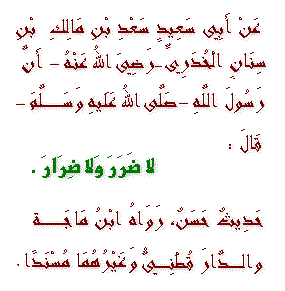 عَنْ أَبِي سَعِيدٍ سَعْدِ بْنِ مَالِكِ بْنِ
سِنَانٍ الْخُدْرِيِّ -رَضِيَ اللهُ عَنْهُ- أَنَّ
رَسُولَ اللَّهِ -صَلَّى اللهُ عَلَيهِ وَسَلَّمَ-
قَالَ :
لا ضَرَرَ وَلا ضِرَارَ .
حَدِيثٌ حَسَنٌ، رَوَاهُ ابْنُ مَاجَة
والدَّارَ قُطْنِيُّ وَغَيْرُهُمَا مُسْنَدًا .